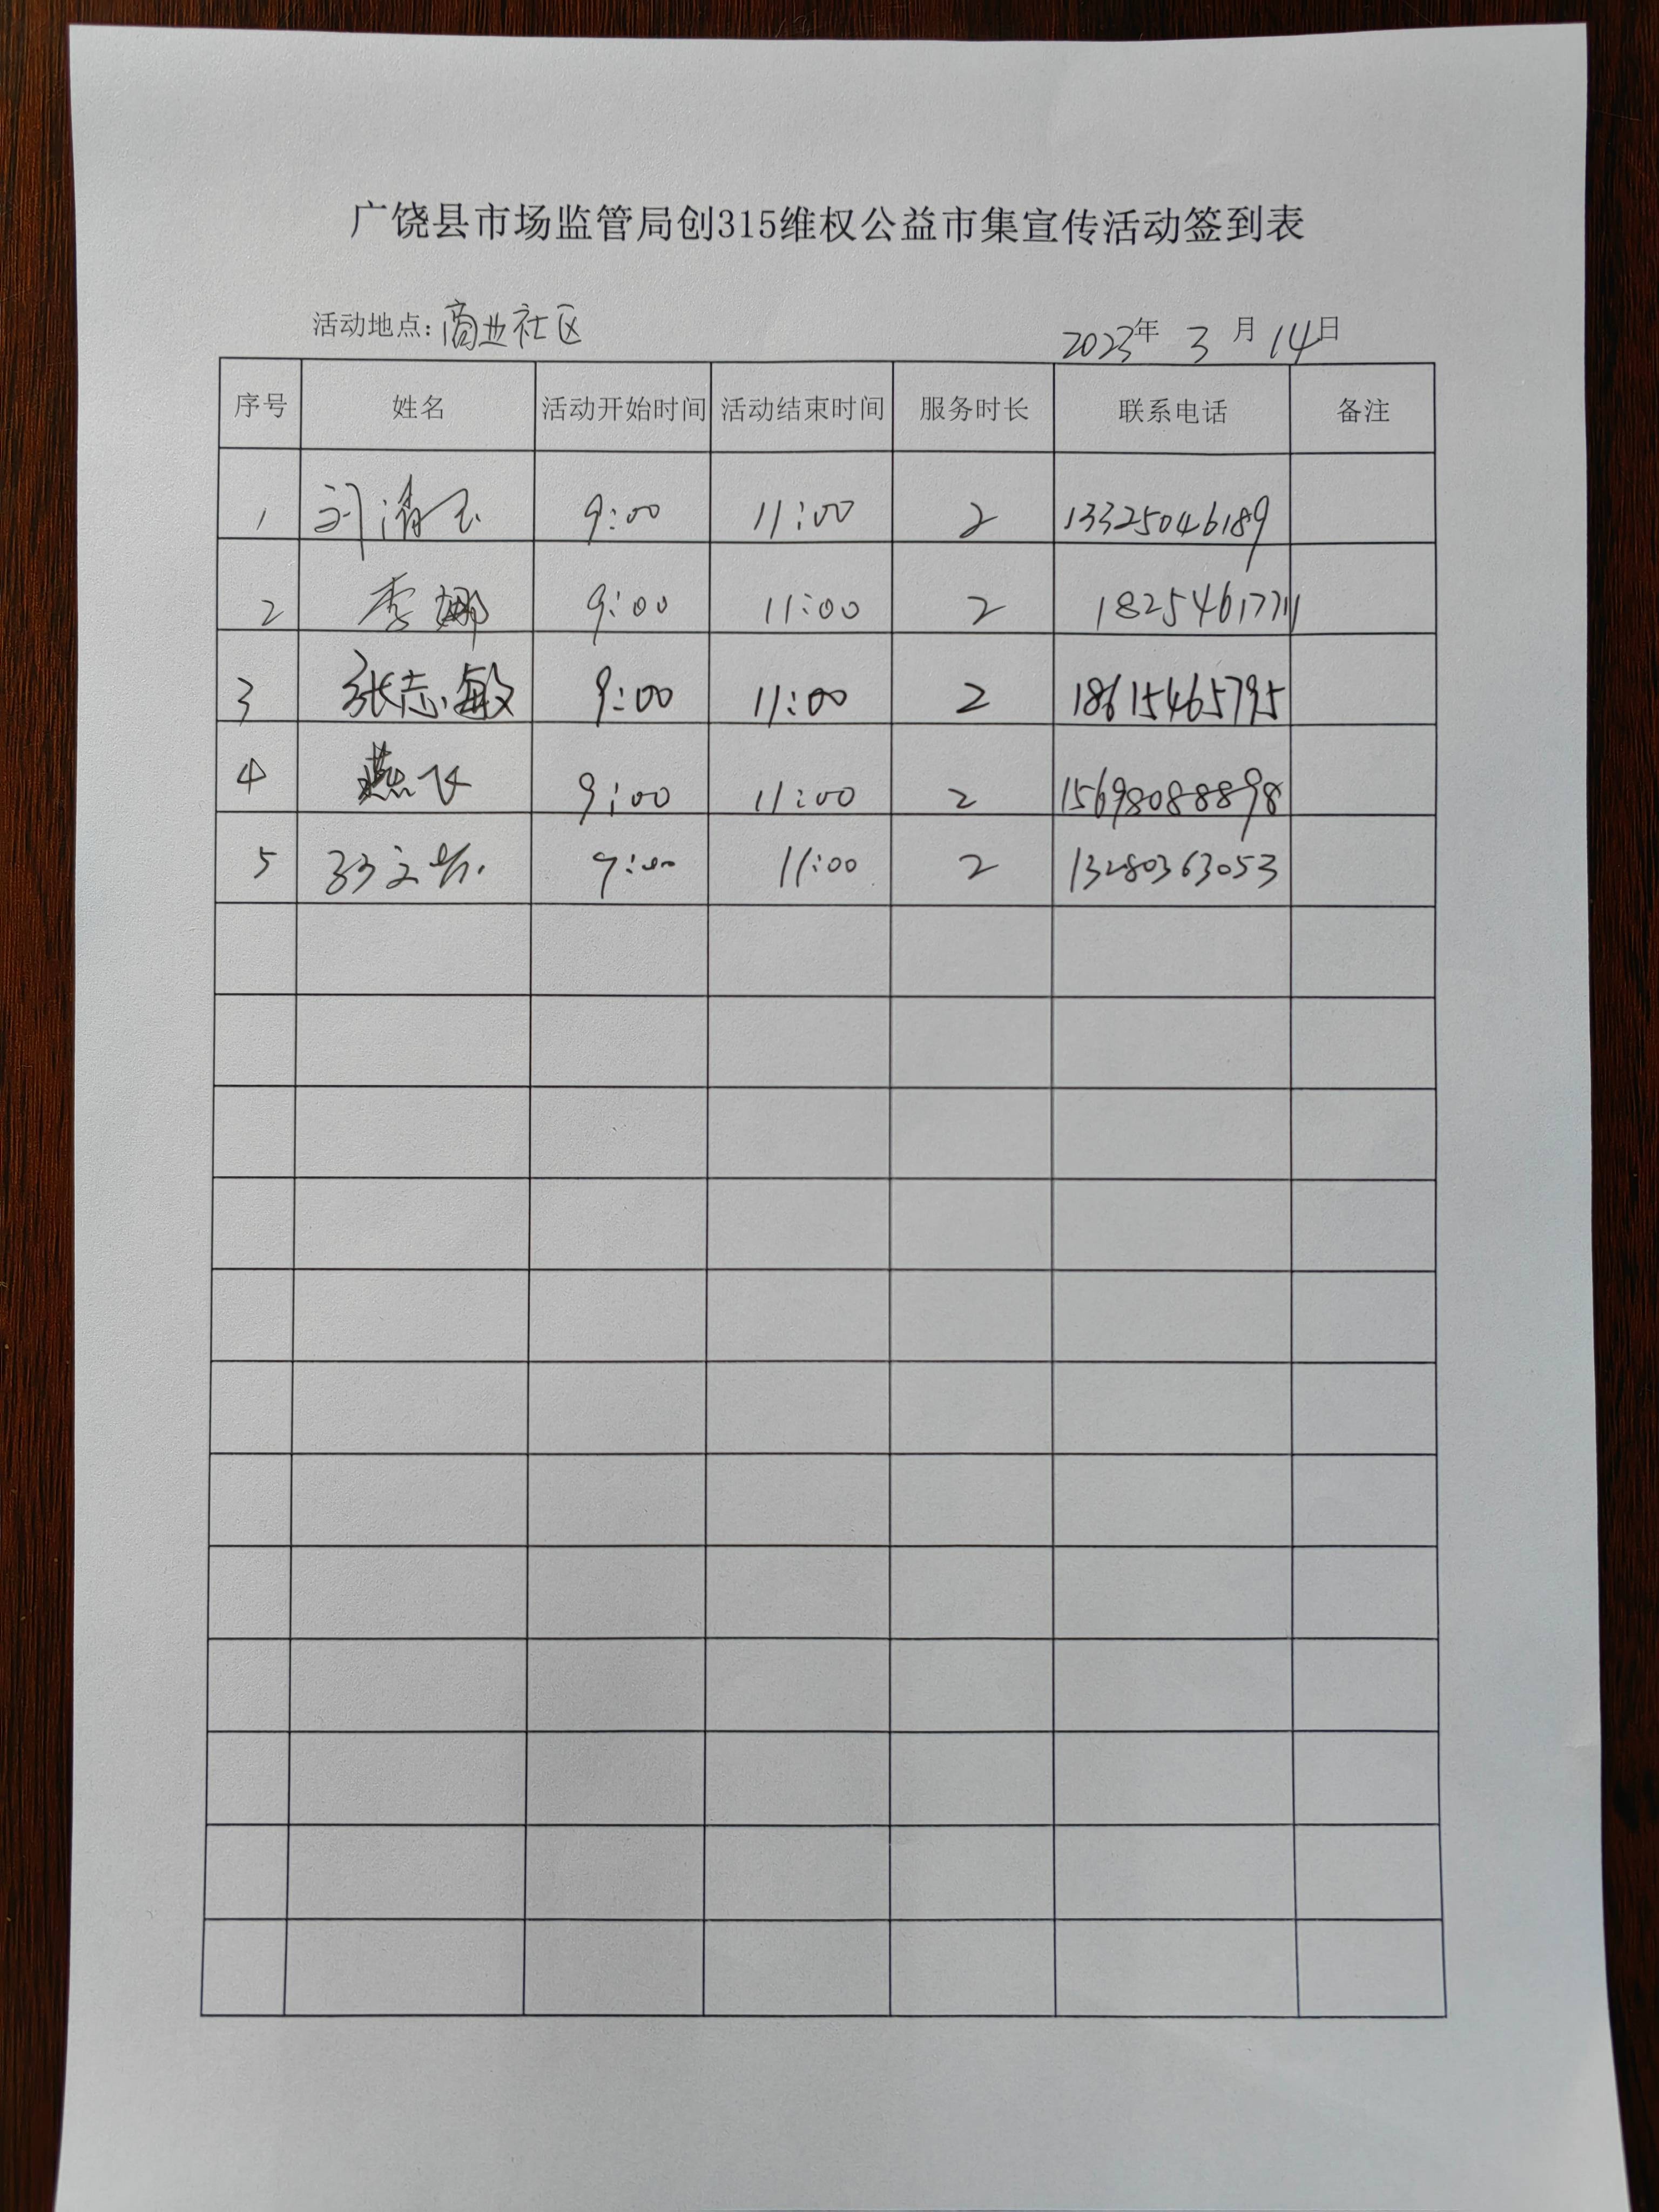 广饶县市场监管局创315维权公益市集宣传活动签到表
活动地点：商业社区 2023年 3 月 14日
序号 姓名 活动开始时间 活动结束时间 服务时长 联系电话 备注
1 刘清玉 9:00 11:00 2 13325046189
2 李娜 9:00 11:00 2 18254617711
3 张志敏 9:00 11:00 2 18615465795
4 燕飞 9:00 11:00 2 15698088898
5 孙文 9:00 11:00 2 13280363053